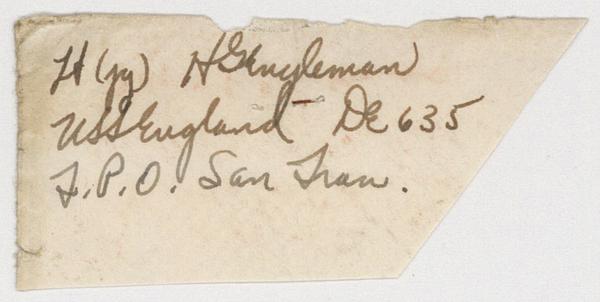 Lt (jg) H G Engleman
USS England DE 635
F.P.O. San Fran.